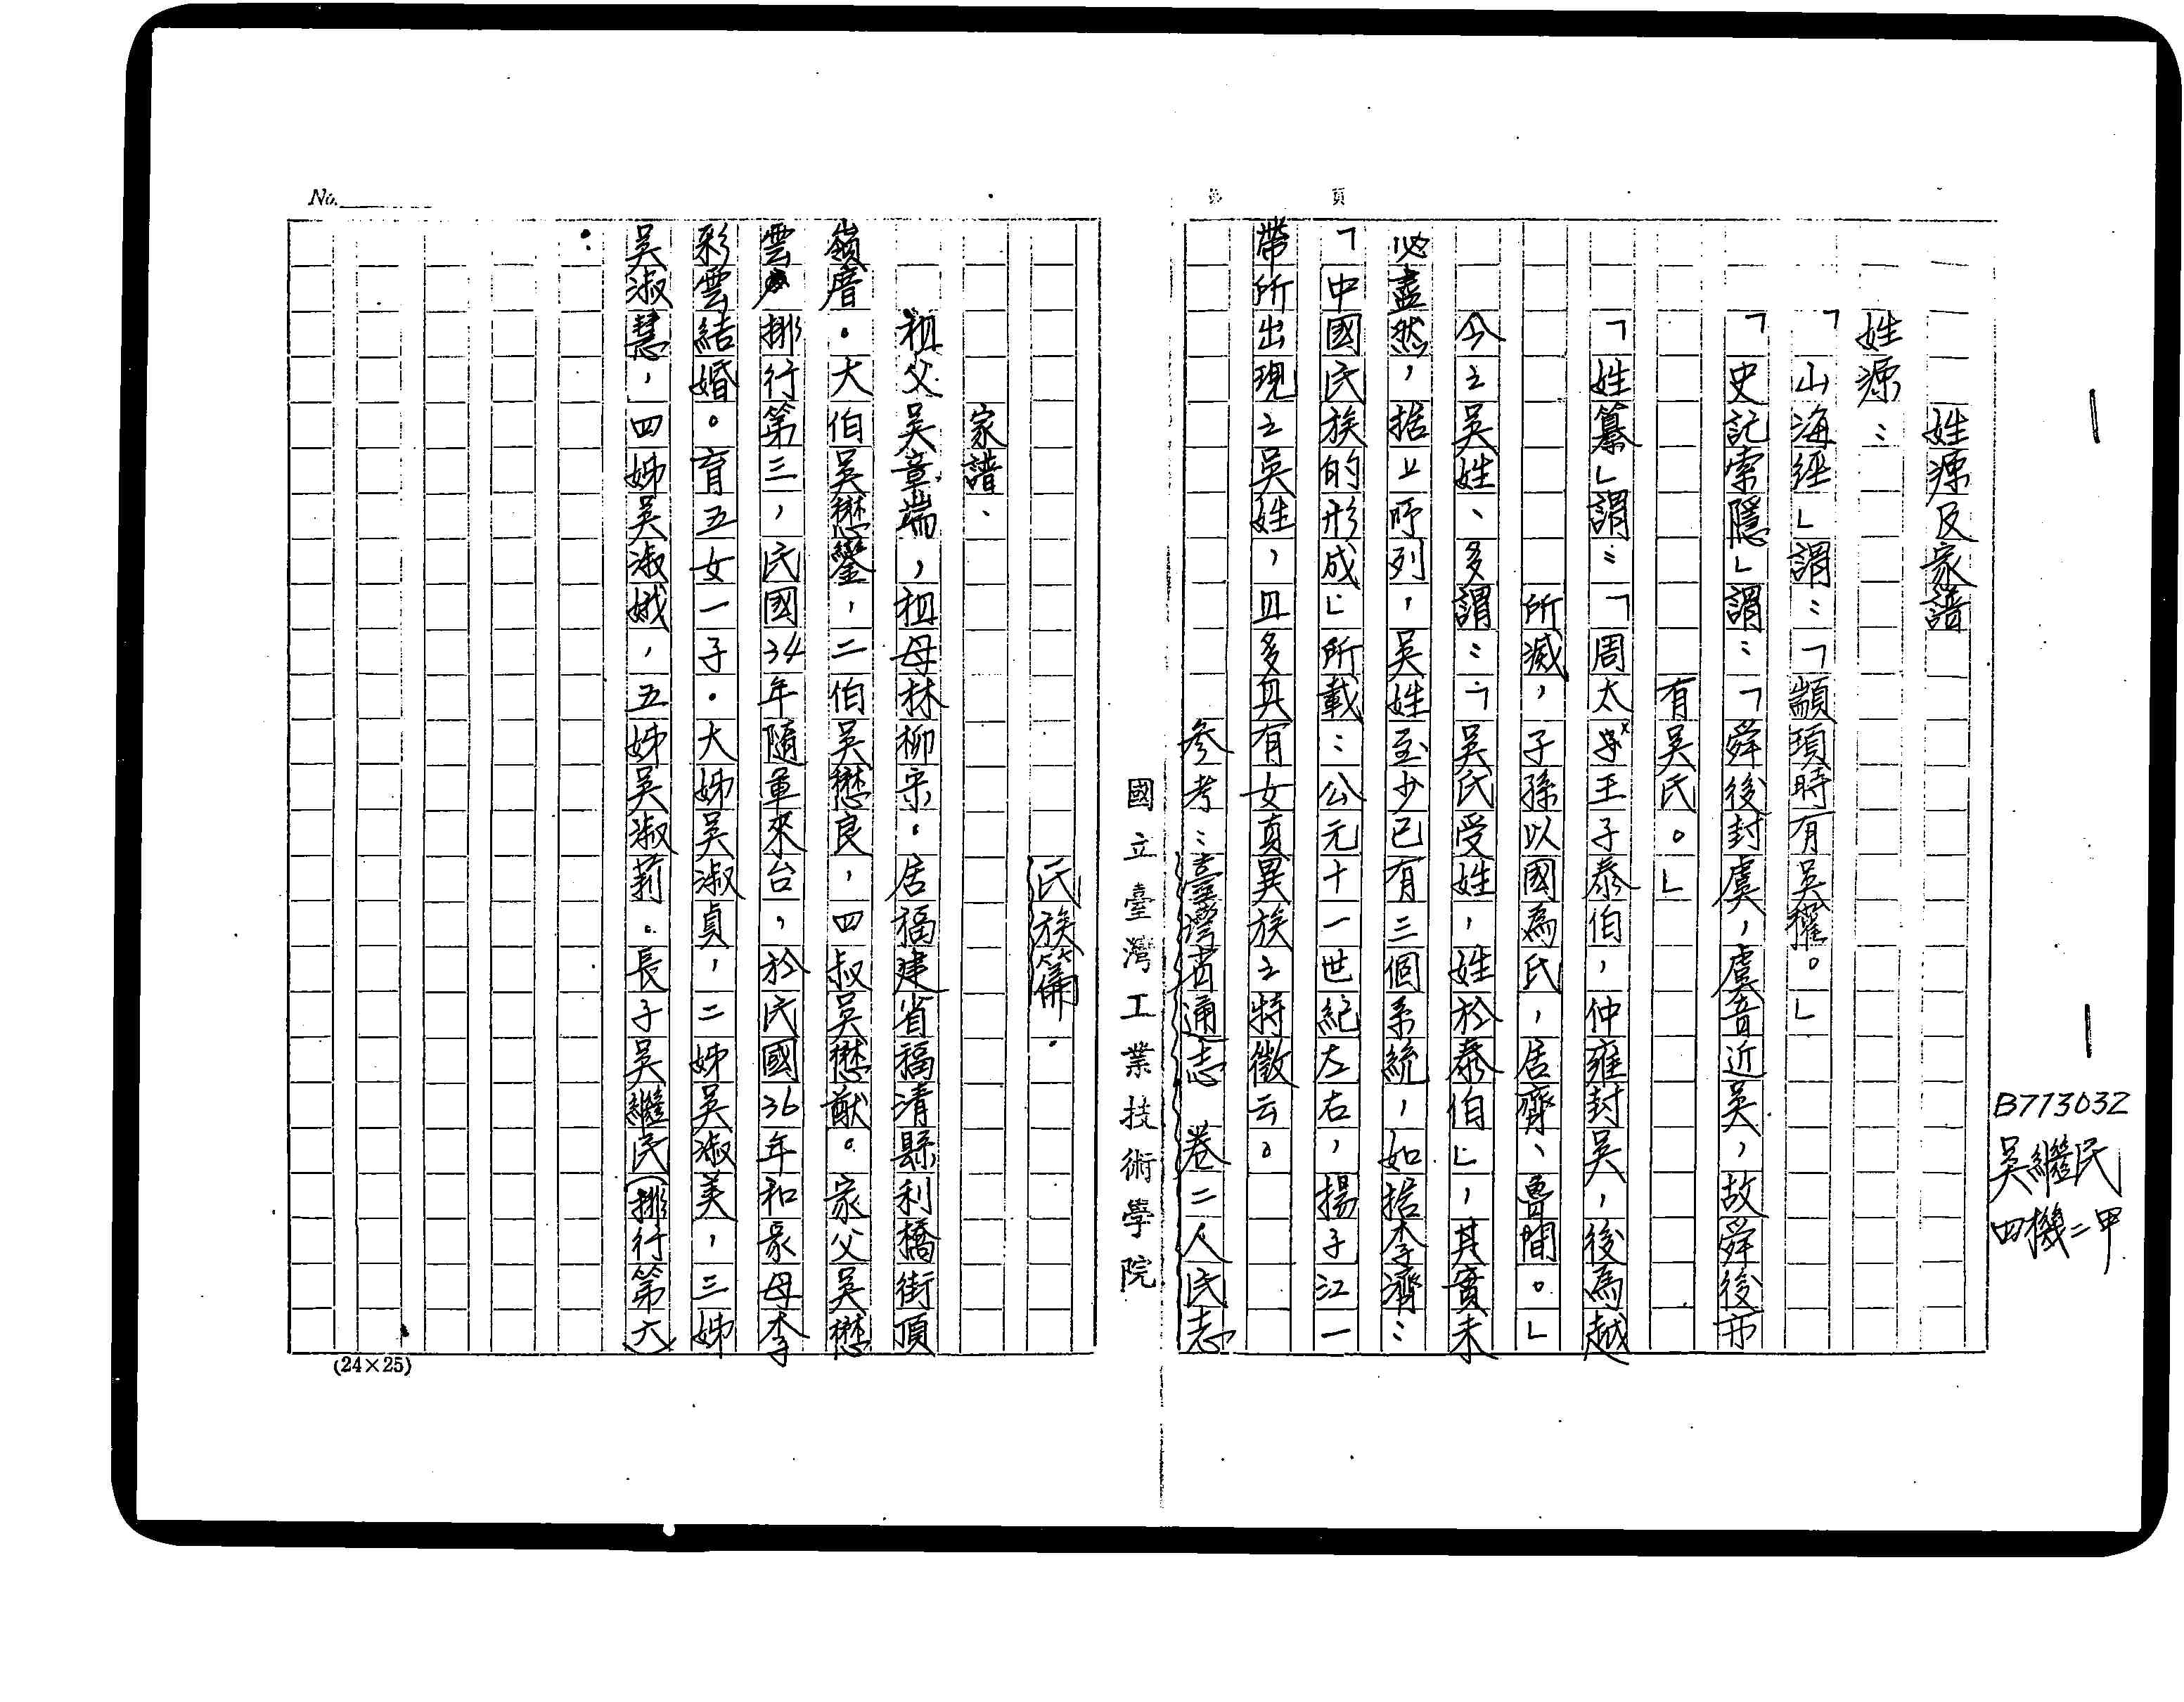 B773032
吳繼民
四機二甲
第　頁
姓源及家譜
姓源：
「山海經」謂：「顓頊時有吳權。」
「史記索隱」謂：「舜後封虞，虞音近吳，故舜後亦
有吳氏。」
「姓纂」謂：「周太王子泰伯，仲雍封吳，後為越
所滅，子孫以國為氏，居齊、魯間。」
今之吳姓、多謂：「吳氏受姓，姓於泰伯」，其實未
必盡然，据上所列，吳姓至少已有三個系統，如据李濟：
「中國民族的形成」所載：公元十一世紀左右，揚子江一
帶所出現之吳姓，且多具有女真異族之特徵云。
參考：臺灣省通志 卷二人民志
國立臺灣工業技術學院
No.
氏族篇.
家譜、
祖父吳章端，祖母林柳宋。居福建省福清縣利橋街頂
嶺厝。大伯吳懋鑾，二伯吳懋良，四叔吳懋猷。家父吳懋
雲排行第三，民國34年隨軍來台，於民國36年和家母李
彩雲結婚。育五女一子。大姊吳淑貞，二姊吳淑美，三姊
吳淑慧，四姊吳淑娥，五姊吳淑莉。長子吳繼民(排行第六)
(24×25)